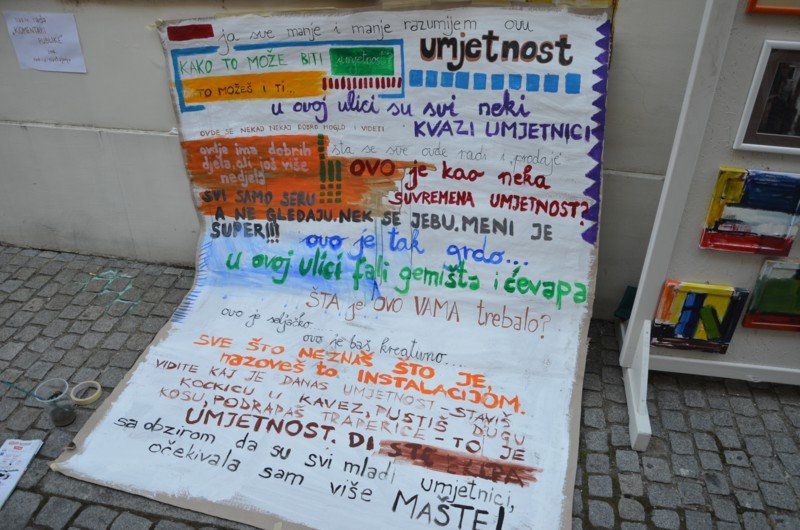 NAZIV RADA
"KOMENTARI
PUBLIKE"
ja sve manje i manje razumijem ovu
umjetnost
KAKO TO MOŽE BITI umjetnost?
TO MOŽEŠ I TI...
u ovoj ulici su svi neki
KVAZI UMJETNICI
OVDJE SE NEKAD NEKAJ DOBRO MOGLO I VIDJETI
ovdje ima dobrih
djela, ali još više
nedjela
šta se sve ovde radi i prodaje
!!! OVO je kao neka
SUVREMENA UMJETNOST?
SVI SAMO SERU
A NE GLEDAJU. NEK SE JEBU. MENI JE
SUPER!!!
ovo je tak grdo...
u ovoj ulici fali gemišta i ćevapa
ŠTA je OVO VAMA trebalo?
ovo je seljačko...
ovo je baš kreativno...
SVE ŠTO NE ZNAŠ ŠTO JE,
nazoveš to INSTALACIJOM.
VIDITE KAJ JE DANAS UMJETNOST - STAVIŠ
KOCKICU U KAVEZ, PUSTIŠ DUGU
KOSU, PODRAPAŠ TRAPERICE - TO JE
UMJETNOST. DI
sa obzirom da su svi mladi umjetnici,
očekivala sam više MAŠTE!